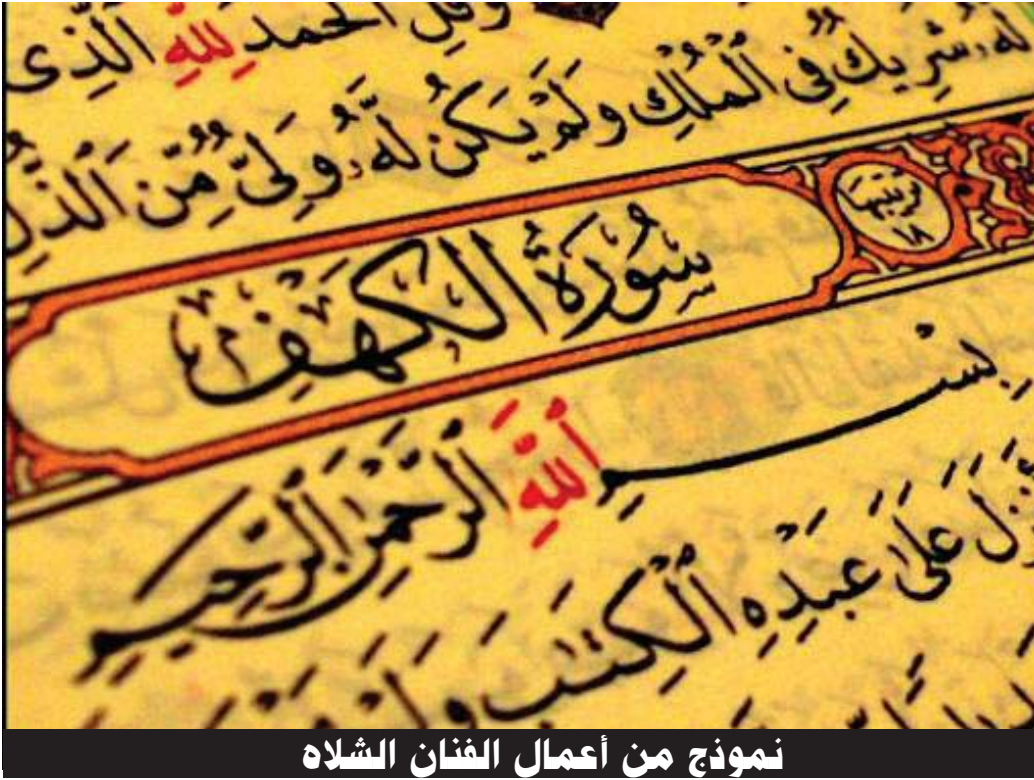 وَقُلِ ٱلْحَمْدُ لِلَّهِ ٱلَّذِى
لَّهُۥ شَرِيكٌ فِى ٱلْمُلْكِ وَلَمْ يَكُن لَّهُۥ وَلِىٌّ مِّنَ ٱلذُّلِّ
سُورَةُ الْكَهْفِ
١٨
بِسْمِ ٱللَّهِ ٱلرَّحْمَٰنِ ٱلرَّحِيمِ
عَلَىٰ عَبْدِهِ ٱلْكِتَٰبَ وَلَمْ
نموذج من أعمال الفنان الشلاه